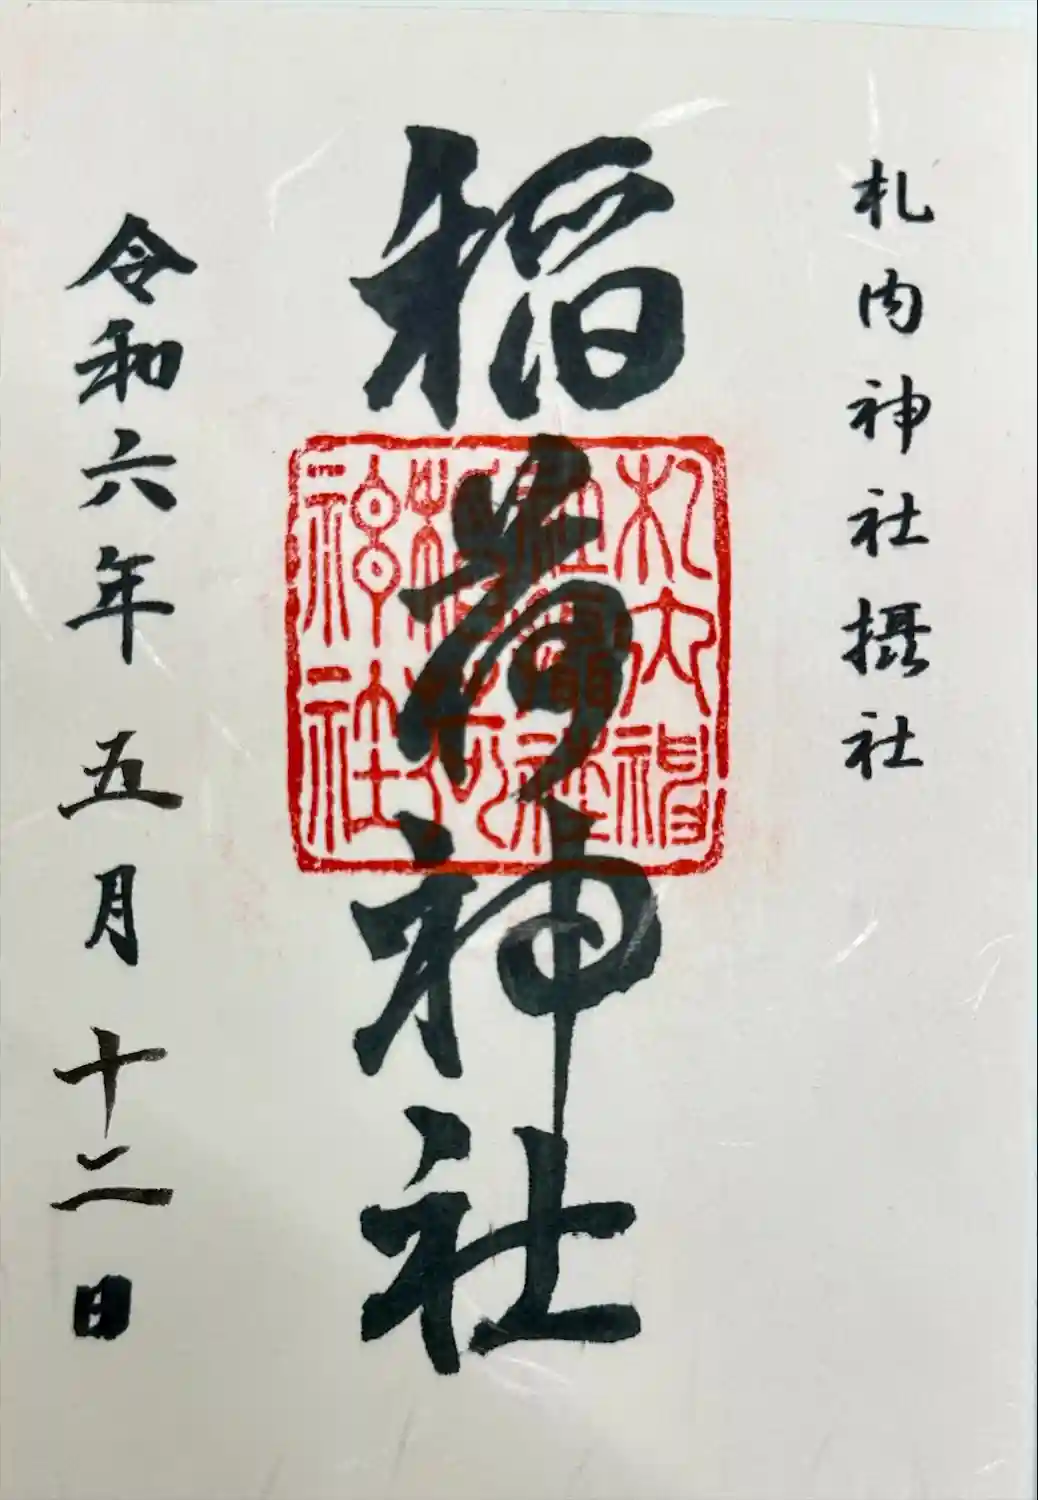 札内神社摂社
稲荷神社
札内神
社攝社
稲荷
神社
令和六年五月十二日